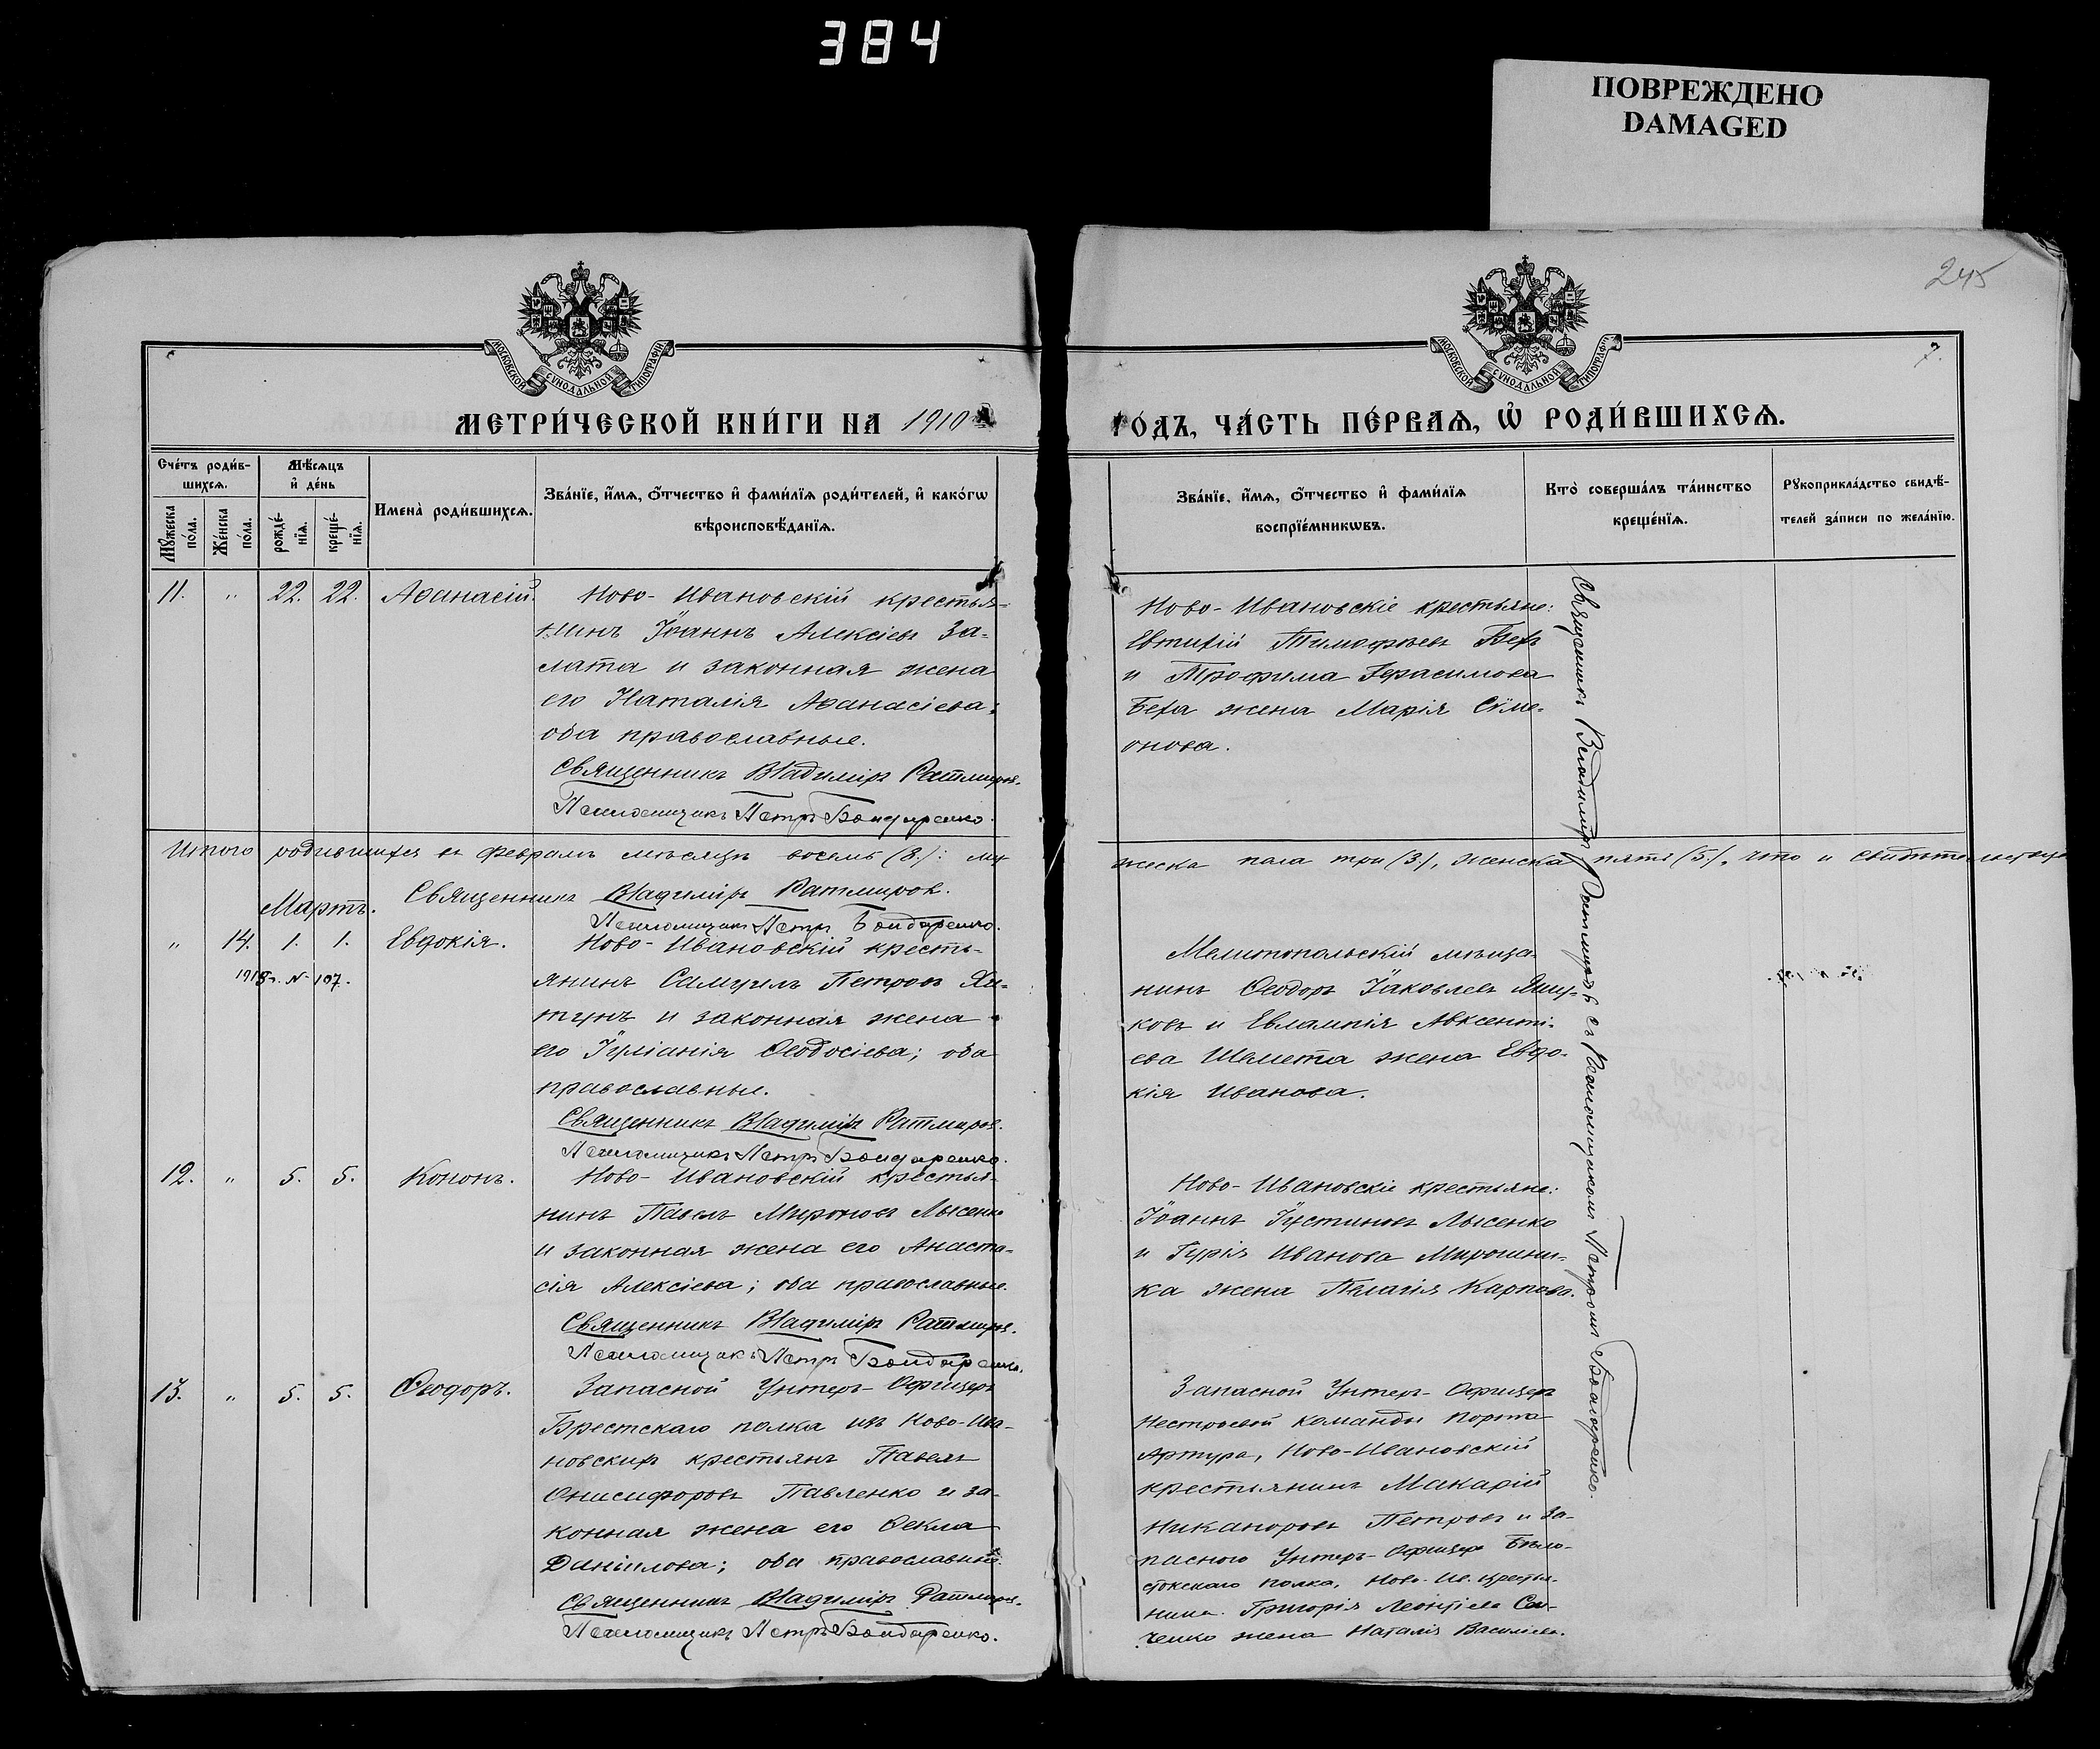 384
ПОВРЕЖДЕНО
DAMAGED
245
7.
МОСКОВСКОЙ СУНОДАЛЬНОЙ ТИПОГРАФІИ
МОСКОВСКОЙ СУНОДАЛЬНОЙ ТИПОГРАФІИ
МЕТРИ́ЧЕСКОЙ КНИ́ГИ НА 1910
ГОДЪ, ЧА́СТЬ ПЕ́РВАѦ, Ѡ҆ РОДИ́ВШИХСѦ.
Сче́тъ роди́в-
шихсѧ.
Мꙋ́жеска по́ла.
Же́нска по́ла.
Мѣ́сѧцъ
и҆ де́нь
рожде́-
нїѧ.
креще́-
нїѧ.
Имена̀ роди́вшихсѧ.
Зва́нїе, и҆́мѧ, ѻ҆́тчество и҆ фами́лїѧ роди́телей, и҆ како́гѡ
вѣроисповѣ́данїѧ.
Зва́нїе, и҆́мѧ, ѻ҆́тчество и҆ фами́лїѧ
воспрїе́мникѡвъ.
Кто̀ соверша́лъ та́инство
креще́нїѧ.
Рꙋкоприкла́дство свидѣ́-
телей за́писи по жела́нїю.
11. " 22. 22. Аѳанасій.
Ново-Ивановскій крестья-
нинъ Іоаннъ Алексіевъ За-
лата и законная жена
его Наталія Аѳанасіева;
оба православные.
Священникъ Владиміръ Ратмиров.
Псаломщикъ Петръ Бондаренко.
Ново-Ивановскіе крестьяне:
Евтихій Тимофѣевъ Бехъ
и Трофима Герасимова
Беха жена Марія Сѵме-
онова.
Священникъ Владиміръ Ратмировъ съ Псаломщикомъ Петромъ Бондаренко.
Итого родившихся въ Февралѣ мѣсяцѣ восемь (8.): му-
жеска пола три (3.), женска пять (5.), что и свидѣтельствуемъ
Священникъ Владиміръ Ратмиров.
Псаломщикъ Петръ Бондаренко.
Мартъ.
" 14. 1. 1. Евдокія.
N 107.
Ново-Ивановскій кресть-
янинъ Самуилъ Петровъ Хи-
тунъ и законная жена
его Іуліанія Ѳеодосіева; оба
православные.
Священникъ Владиміръ Ратмиров.
Псаломщикъ Петръ Бондаренко.
Мелитопольскій мѣща-
нинъ Ѳеодоръ Іаковлевъ
ковъ и Евлампія Авксенті-
ева Шелеста жена Евдо-
кія Иванова.
12. " 5. 5. Кононъ.
Ново-Ивановскій крестья-
нинъ Павелъ Мироновъ Лысенко
и законная жена его Анаста-
сія Алексіева; оба православные.
Священникъ Владиміръ Ратмиров.
Псаломщикъ Петръ Бондаренко.
Ново-Ивановскіе крестьяне:
Іоаннъ Іустиновъ Лысенко
и Гурія Иванова Мирошни-
ка жена Пелагія Карпова.
13. " 5. 5. Ѳеодоръ.
Запасной Унтеръ-Офицеръ
Брестскаго полка изъ Ново-Ива-
новскихъ крестьянъ Павелъ
Онисифоровъ Павленко и за-
конная жена его Ѳекла
Даніилова; оба православные.
Священникъ Владиміръ Ратмиров.
Псаломщикъ Петръ Бондаренко.
Запасной Унтеръ-Офицеръ
Нестроевой команды Порта
Артура, Ново-Ивановскій
крестьянинъ Макарій
Никаноровъ Петровъ и За-
пасного Унтеръ-Офицера Бѣло-
стокскаго полка, Ново-Ив. крестья-
нина Григорія Леонтіева Сен-
ченко жена Наталія Васильева.